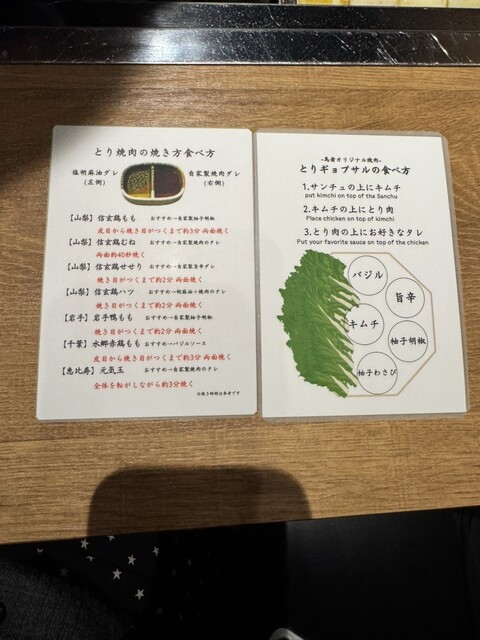 とり焼肉の焼き方食べ方
塩胡麻油ダレ
(左側)
自家製焼肉ダレ
(右側)
【山梨】信玄鶏もも おすすめ→自家製柚子胡椒
皮目から焼き目がつくまで約3分 両面焼く
【山梨】信玄鶏むね おすすめ→自家製焼肉のタレ
両面約40秒焼く
【山梨】信玄鶏せせり おすすめ→自家製旨辛ダレ
焼き目がつくまで約2分 両面焼く
【山梨】信玄鶏ハツ おすすめ→胡麻油+焼肉のタレ
焼き目がつくまで約2分 両面焼く
【岩手】岩手鴨もも おすすめ→自家製柚子胡椒
焼き目がつくまで約2分 両面焼く
【千葉】水郷赤鶏もも おすすめ→バジルソース
皮目から焼き目がつくまで約3分 両面焼く
【恵比寿】元気玉 おすすめ→自家製焼肉のタレ
全体を転がしながら約3分焼く
※焼き時間は参考です
オリジナル焼肉-
とりギョプサルの食べ方
1.サンチュの上にキムチ
put kimchi on top of the Sanchu
2.キムチの上にとり肉
Place chicken on top of kimchi
3.とり肉の上にお好きなタレ
Put your favorite sauce on top of the chicken
バジル
旨辛
キムチ
柚子胡椒
柚子わさび